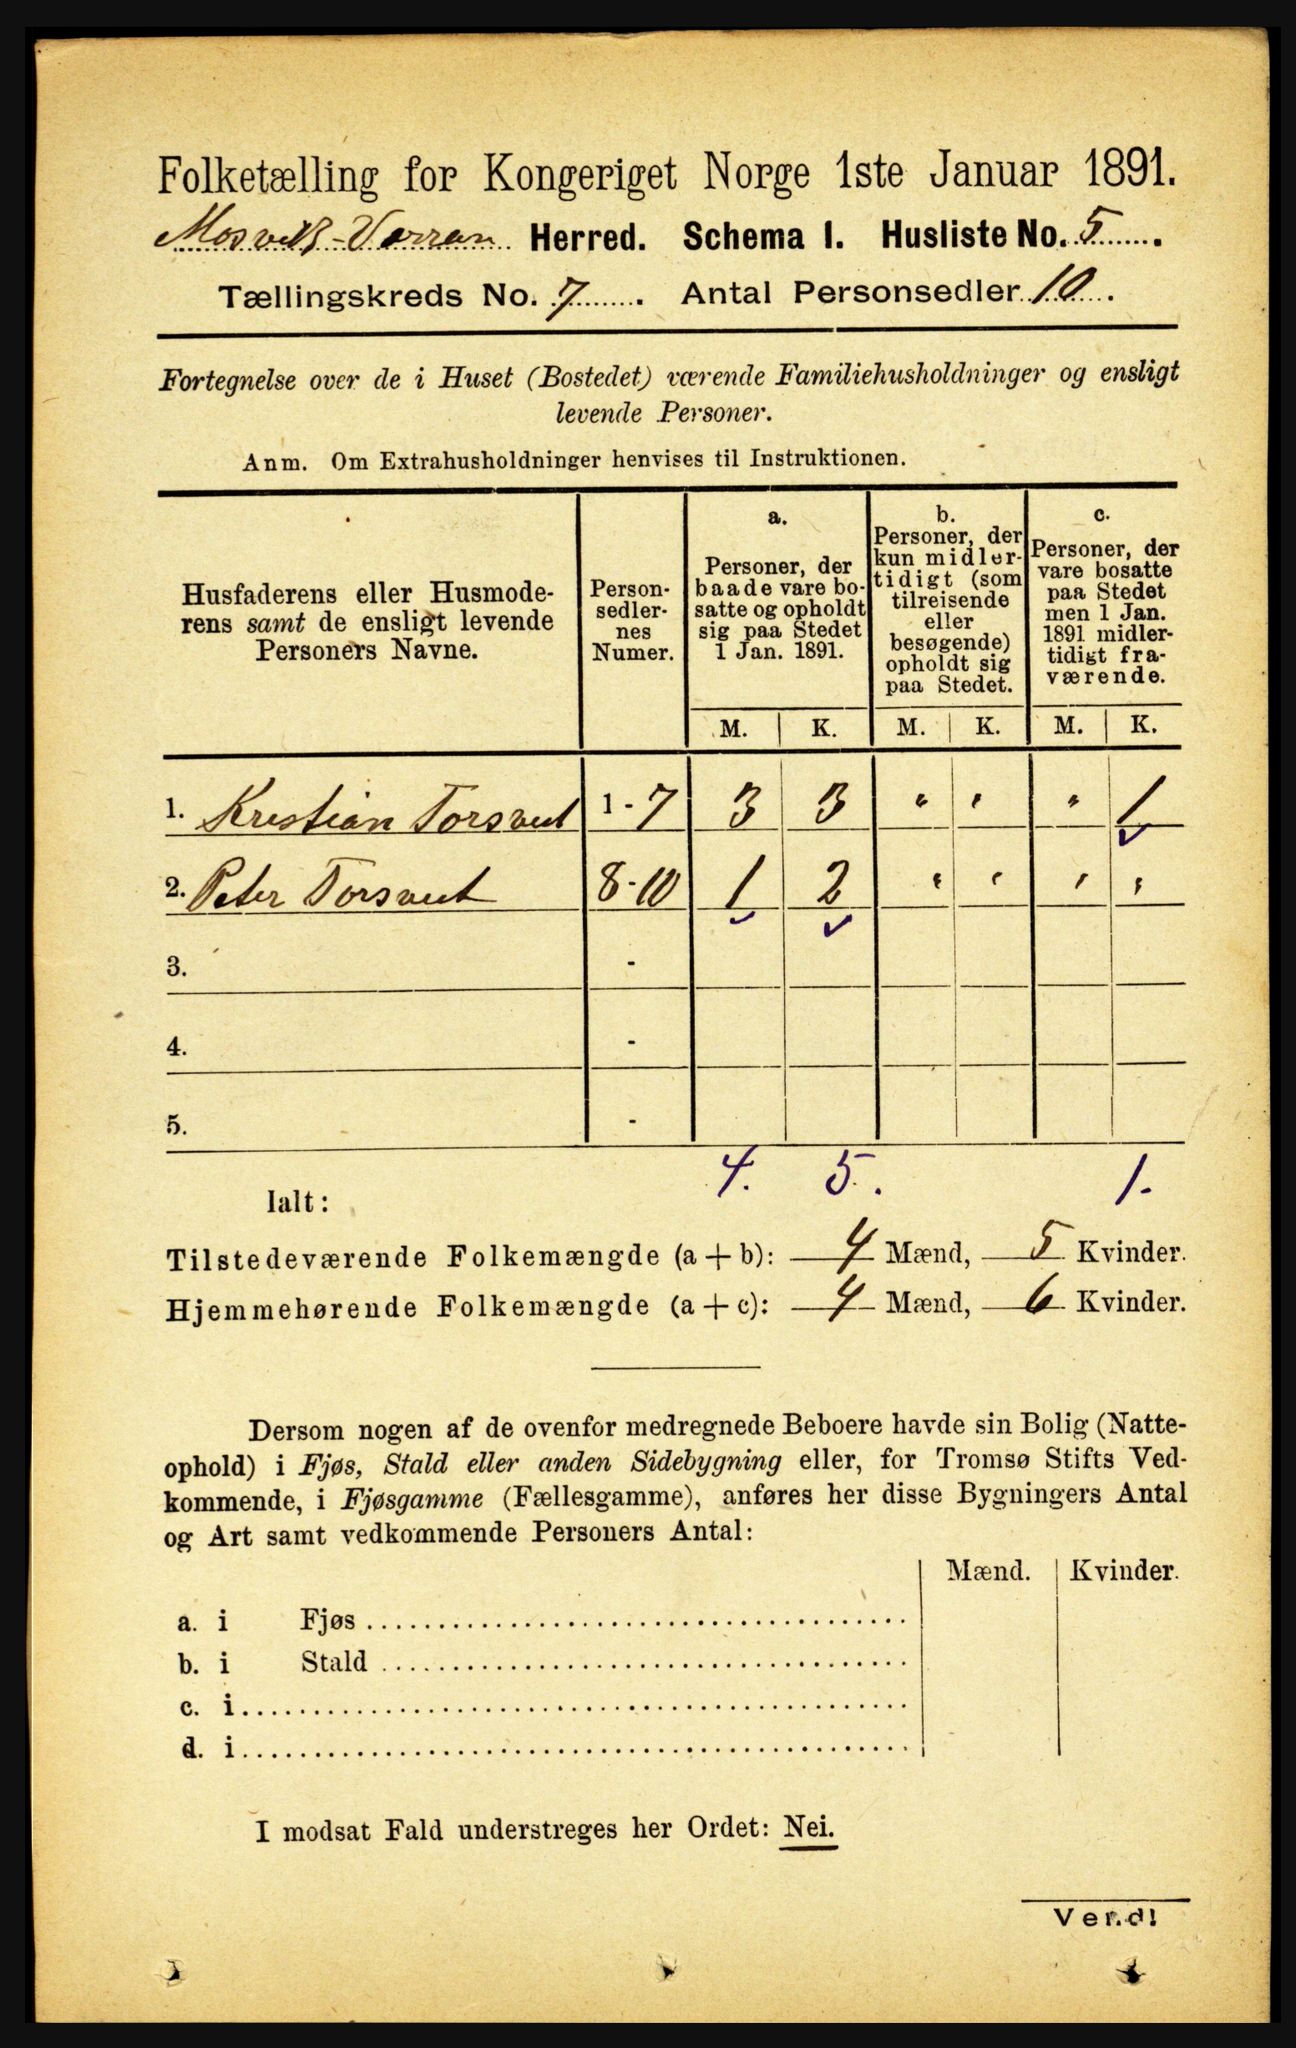 Folketælling for Kongeriget Norge 1ste Januar 1891.
Mosvik-Verran Herred. Schema I. Husliste No. 5.
Tællingskreds No. 7. Antal Personsedler 10.
Fortegnelse over de i Huset (Bostedet) værende Familiehusholdninger og ensligt
levende Personer.
Anm. Om Extrahusholdninger henvises til Instruktionen.
Husfaderens eller Husmode-
rens samt de ensligt levende
Personers Navne.
Person-
sedler-
nes
Numer.
a.
Personer, der
baade vare bo-
satte og opholdt
sig paa Stedet
1 Jan. 1891.
b.
Personer, der
kun midler-
tidigt (som
tilreisende
eller
besøgende)
opholdt sig
paa Stedet.
c.
Personer, der
vare bosatte
paa Stedet
men 1 Jan.
1891 midler-
tidigt fra-
værende.
M. K. M. K. M. K.
1. Kristian Torsvut 1-7 3 3 " " " 1
2. Peter Torsvut 8-10 1 2 " " " "
3. -
4. -
5. -
4. 5. 1.
Ialt:
Tilstedeværende Folkemængde (a + b): 4 Mænd, 5 Kvinder.
Hjemmehørende Folkemængde (a + c): 4 Mænd, 6 Kvinder.
Dersom nogen af de ovenfor medregnede Beboere havde sin Bolig (Natte-
ophold) i Fjøs, Stald eller anden Sidebygning eller, for Tromsø Stifts Ved-
kommende, i Fjøsgamme (Fællesgamme), anføres her disse Bygningers Antal
og Art samt vedkommende Personers Antal:
Mænd. Kvinder.
a. i Fjøs
b. i Stald
c. i
d. i
I modsat Fald understreges her Ordet: Nei.
Vend!